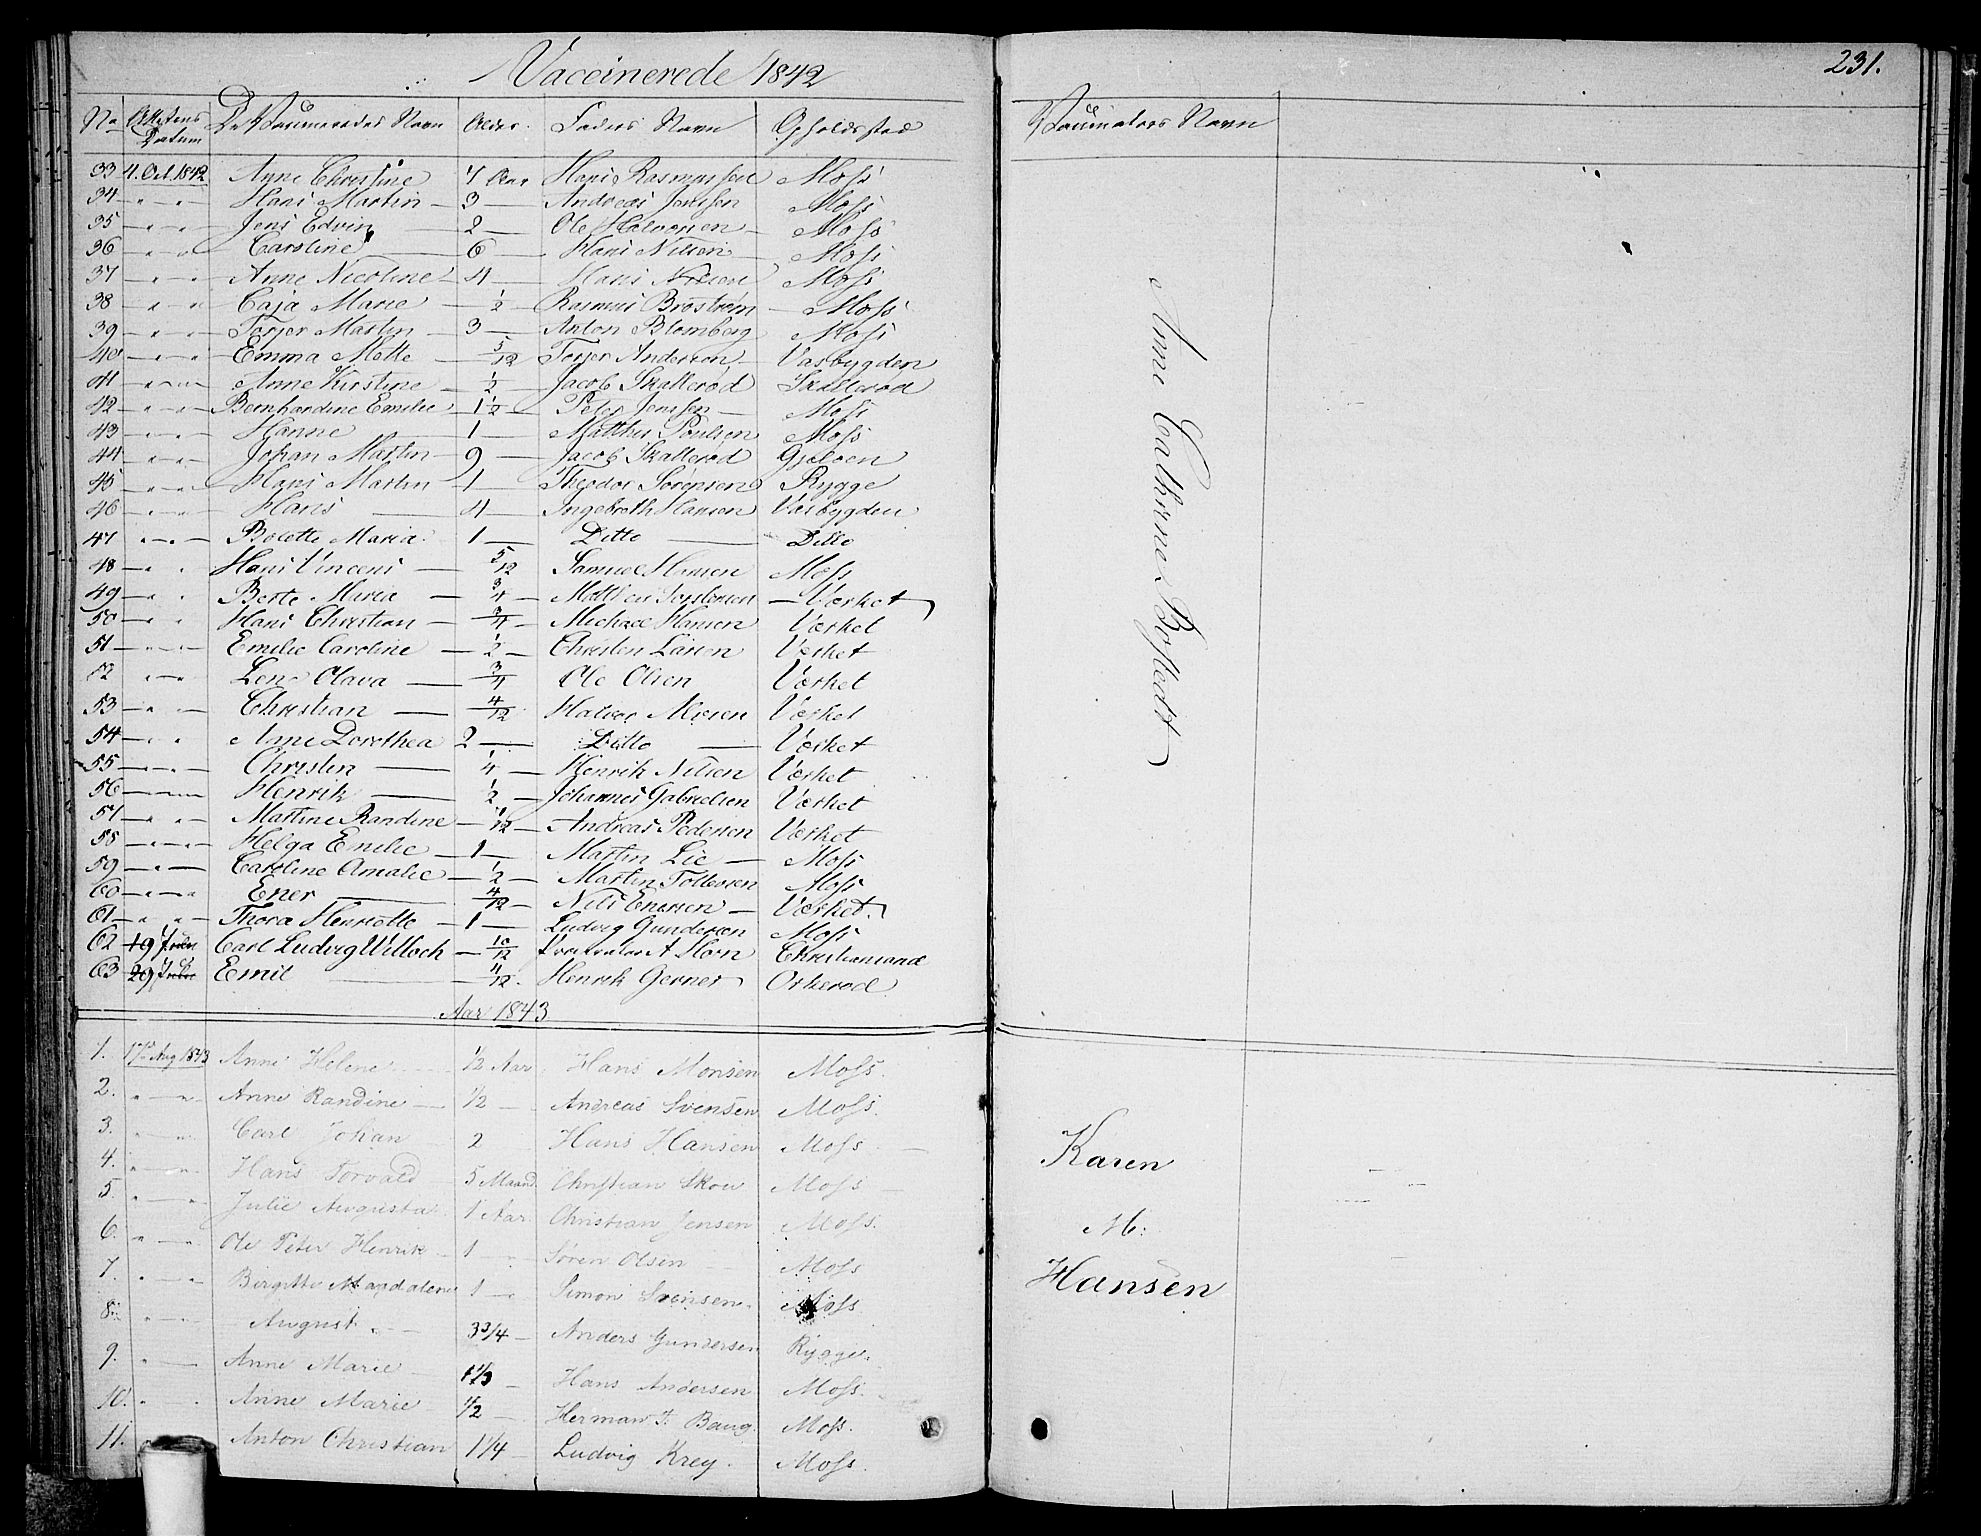 Vaccinerede 1842
231.
No Attestens Datum De Vaccineredes Navn Alder. Faders Navn Opholdssted Vaccinators Navn
33 4. Oct. 1842 Anne Christine 7 Aar Hans Rasmussen Moss
34 " " " Hans Martin 3 Andreas Jenssen Moss
35 " " " Jens Edvin 2 Ole Halvorsen Moss
36 " " " Caroline 6 Hans Nilsen Moss
37 " " " Anne Nicoline 4 Hans Nilsen Moss
38 " " " Caja Marie 1/2 Rasmus Broström Moss
39 " " " Torjer Martin 3 Anton Blomberg Moss
40 " " " Emma Mette 5/12 Torjer Andersen Vasbygden
41 " " " Anne Kirstine 1/2 Jacob Skallerød Skallerød
42 " " " Bernhardine Emilie 1 1/2 Peter Jenssen Moss
43 " " " Hanne 1 Mathis Poulsen Moss
44 " " " Johan Martin 9 Jacob Skallerød Gjeløen
45 " " " Hans Martin 1 Theodor Sørensen Rygge
46 " " " Hans 4 Ingebreth Hansen Vasbygden
47 " " " Bolette Maria 1 Ditto Ditto
48 " " Hans Vincens 5/12 Samuel Hansen Moss
49 " " Berte Marie 3/4 Mathies Torstensen Værket
50 " " Hans Christian 3/4 Michael Hansen Værket
51 " " " Emilie Caroline 1/2 Christen Larsen Værket
52 " " Lene Olava 3/4 Ole Olsen Værket
53 " " Christian 4/12 Halvor Nilsen Værket
54 " " Anne Dorothea 2 Ditto Værket
55 " " " Christen 1/4 Henrik Nilsen Værket
56 " " " Henrik 1/2 Johannes Gabrielsen Værket
57 " " Martine Randine 4/12 Andreas Pedersen Værket
58 " " " Helga Emilie 1 Martin Lie Moss
59 " " Caroline Amalie 1/2 Martin Tollevsen Moss
60 " " " Ener 4/12 Nils Enersen Værket.
61 " " " Thora Henriette 1 Ludvig Gundersen Moss
62 19 Carl Ludvig Willoch 10/12 A Horn Christiansand
63 29 Emil 4/12 Henrik Gerner Orkerød
Anne Cathrine Bostedt
Aar 1843
1. 17de Aug 1843 Anne Helene 1/2 Aar Hans Monsen Moss.
2. " " Anne Randine 1/2 Andreas Svensen Moss.
3. " " Carl Johan 2 Hans Hansen Moss
4. " " Hans Torvald 5 Maand Christian Skou Moss
5. " " Julie Augusta 1 Aar Christian Jensen Moss.
6. " " Ole Peter Henrik 1 Søren Olsen Moss
7. " " Birgitte Magdalene 1 Simon Svensen Moss
8. " " August 3 3/4 Anders Gundersen Rygge.
9. " Anne Marie 1 1/3 Hans Andersen Moss.
10. " " Anne Marie 1/2 Herman Baug Moss.
11. Anton Christian 1 1/4 Ludvig Krey. Moss.
Karen
M:
Hansen